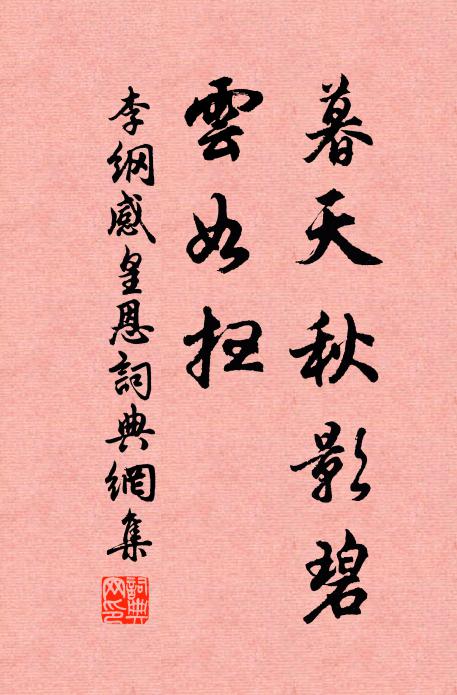 暮天秋影碧
雲如扫
李纲感皇恩詞典網集
詞典网印